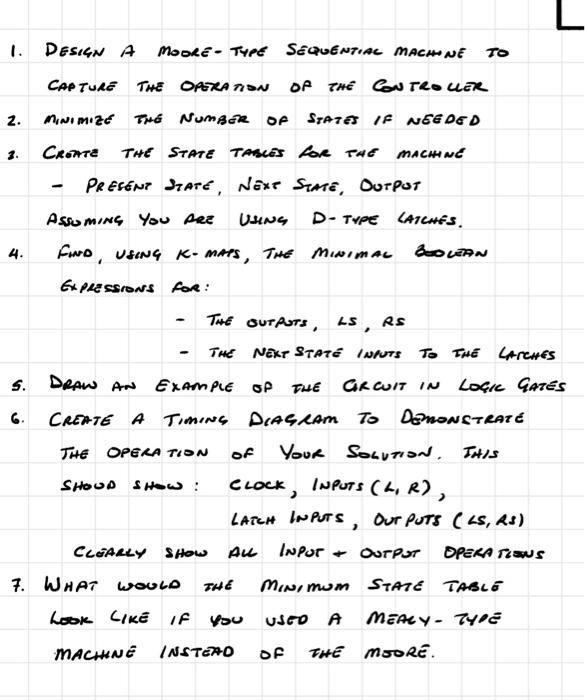 1. DESIGN A MOORE-TYPE SEQUENTIAL MACHINE TO
CAPTURE THE OPERATION OF THE CONTROLLER
2. MINIMIZE THE NUMBER OF STATES IF NEEDED
3. CREATE THE STATE TABLES FOR THE MACHINE
- PRESENT STATE, NEXT STATE, OUTPUT
ASSUMING YOU ARE USING D-TYPE LATCHES.
4. FIND, USING K-MAPS, THE MINIMAL BOOLEAN
EXPRESSIONS FOR:
- THE OUTPUTS, LS, RS
- THE NEXT STATE INPUTS TO THE LATCHES
5. DRAW AN EXAMPLE OF THE CIRCUIT IN LOGIC GATES
6. CREATE A TIMING DIAGRAM TO DEMONSTRATE
THE OPERATION OF YOUR SOLUTION. THIS
SHOUD SHOW: CLOCK, INPUTS (L, R),
LATCH INPUTS, OUTPUTS (LS, RS)
CLEARLY SHOW ALL INPUT + OUTPUT OPERATIONS
7. WHAT WOULD THE MINIMUM STATE TABLE
LOOK LIKE IF YOU USED A MEALY-TYPE
MACHINE INSTEAD OF THE MOORE.